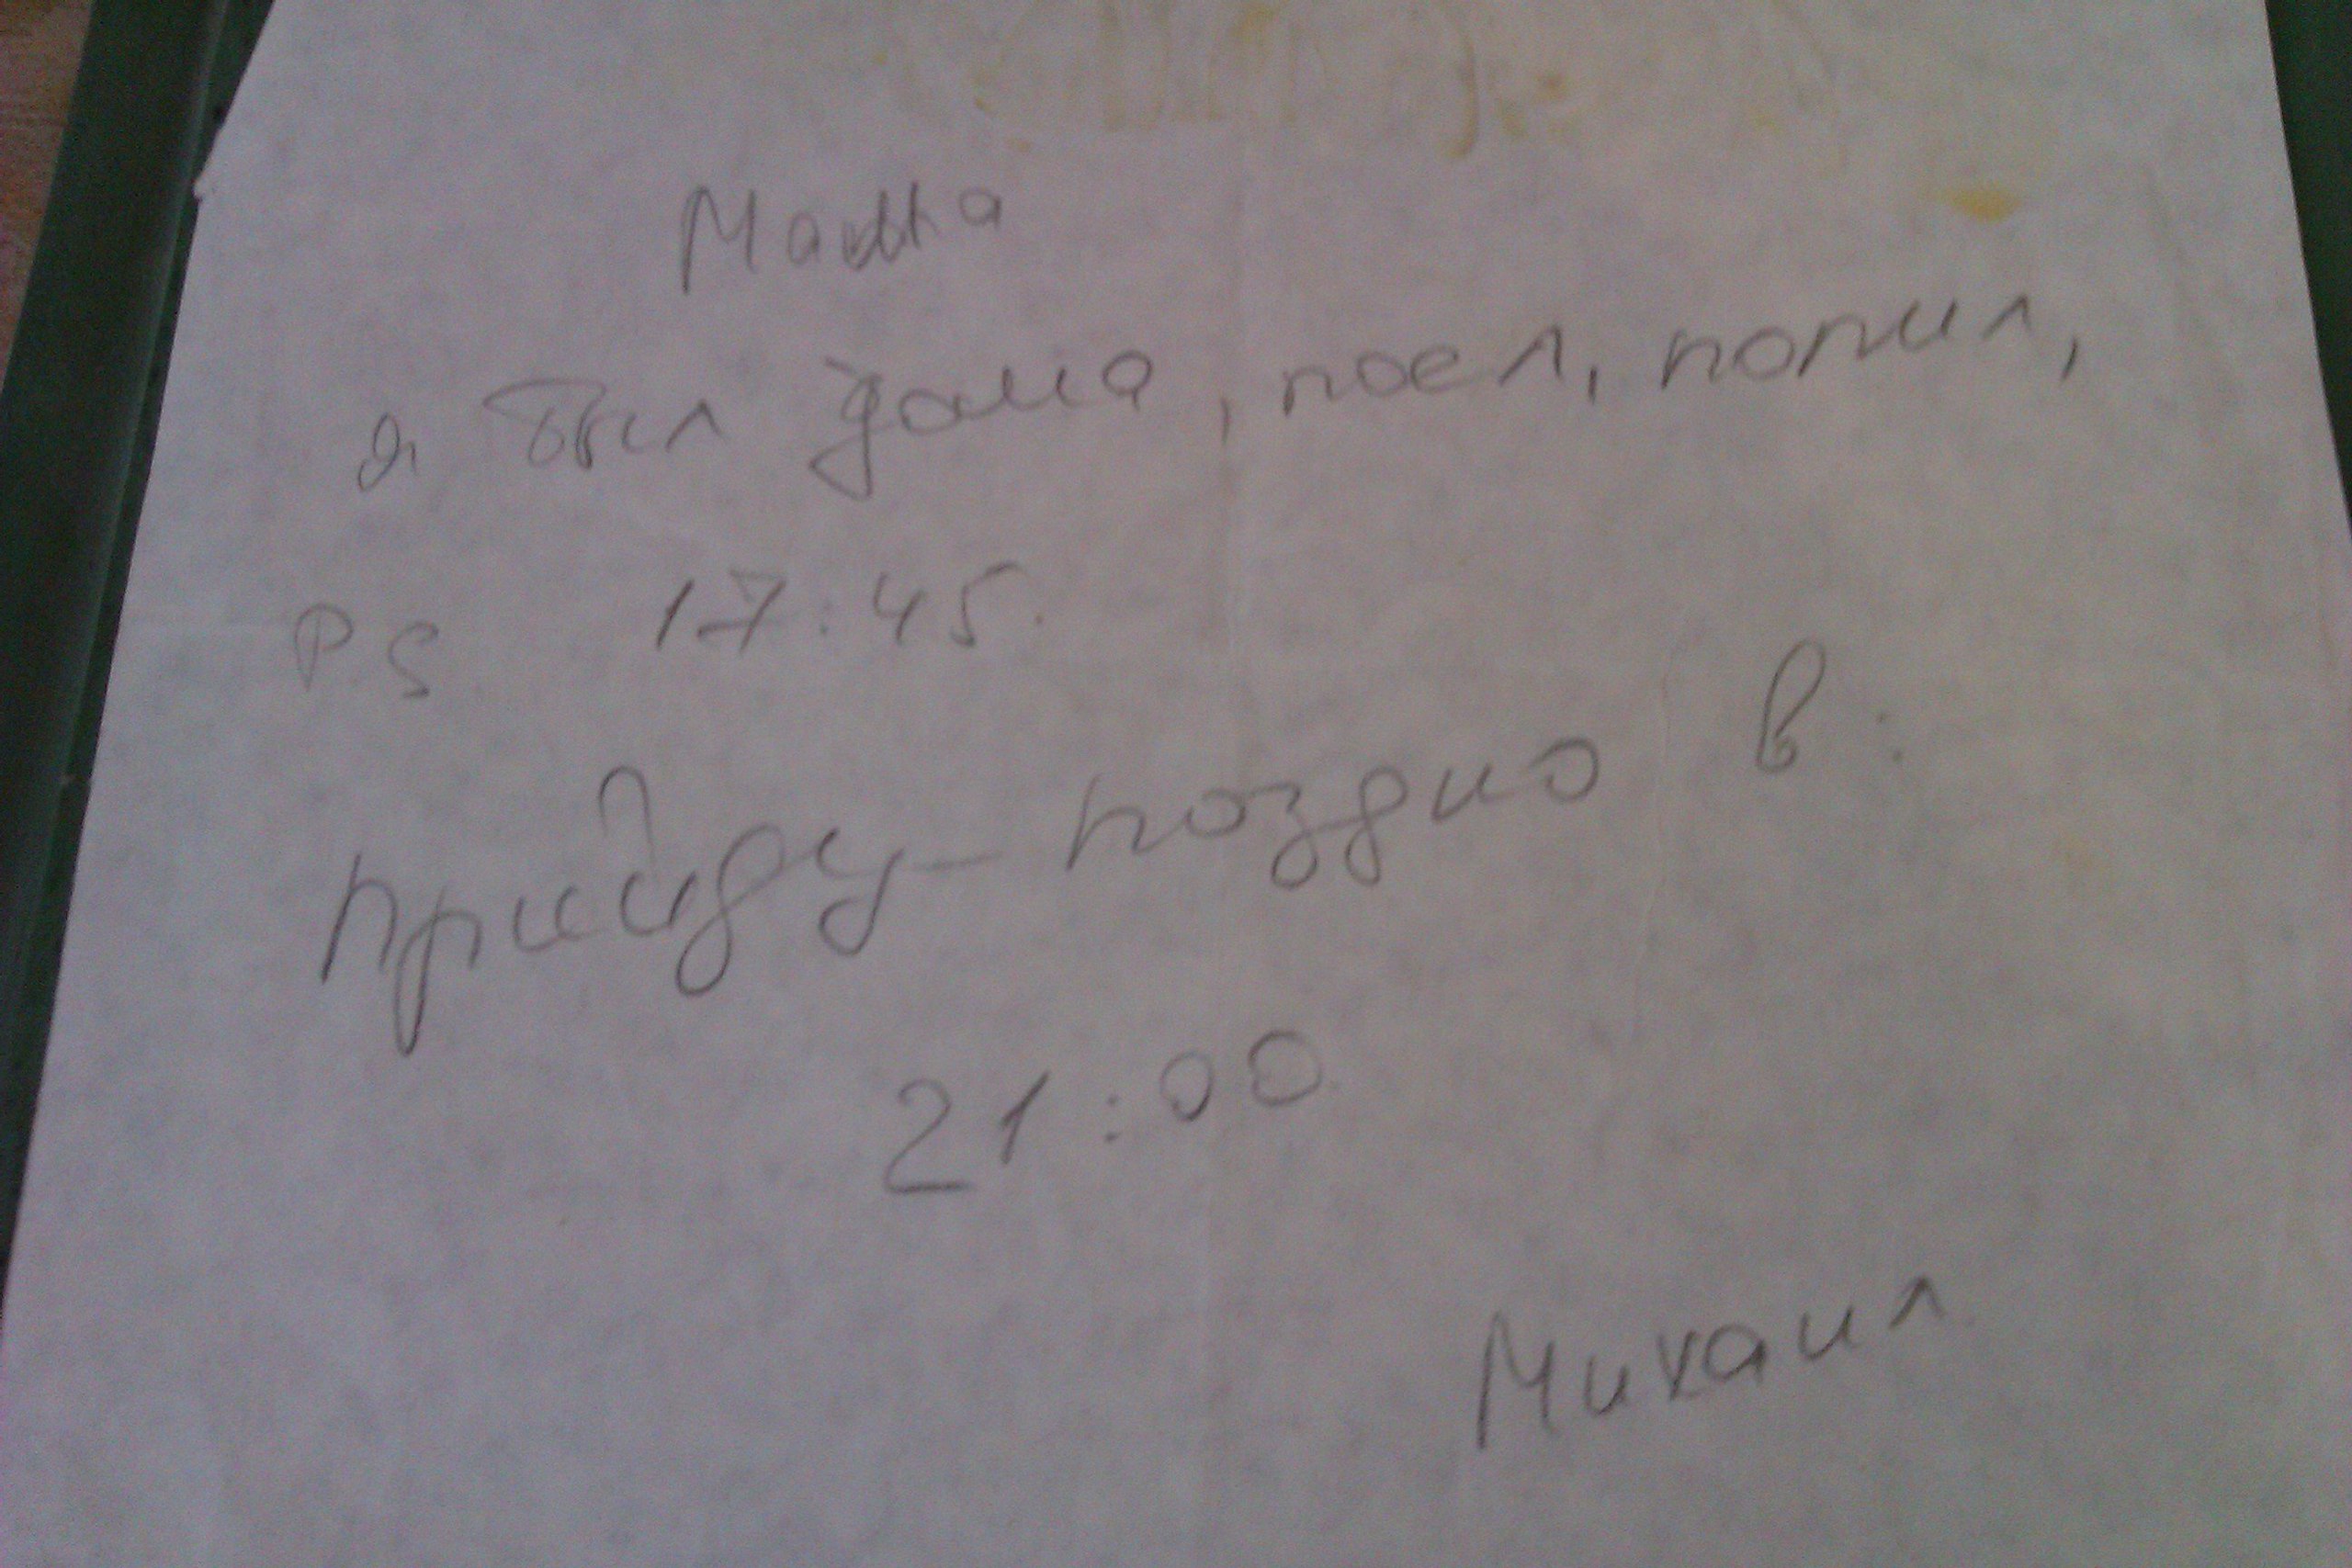 Мама
я был дома, поел, попил,
PS 17:45.
прийду - поздно в:
21:00
Михаил